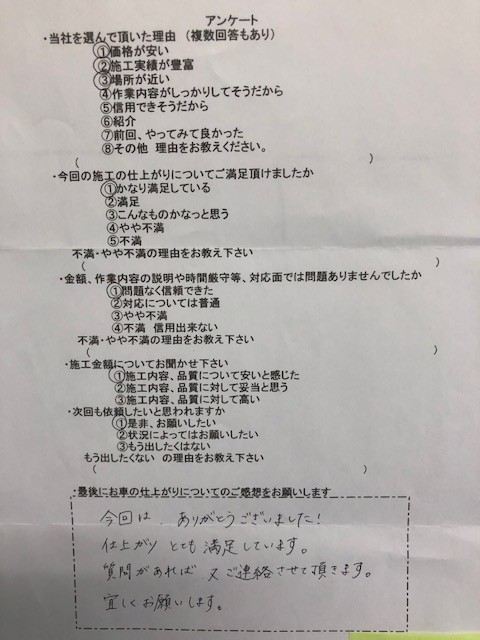 アンケート
・当社を選んで頂いた理由　（複数回答もあり）
①価格が安い
②施工実績が豊富
③場所が近い
④作業内容がしっかりしてそうだから
⑤信用できそうだから
⑥紹介
⑦前回、やってみて良かった
⑧その他　理由をお教えください。
（　）
・今回の施工の仕上がりについてご満足頂けましたか
①かなり満足している
②満足
③こんなものかなっと思う
④やや不満
⑤不満
不満・やや不満の理由をお教え下さい
（　）
・金額、作業内容の説明や時間厳守等、対応面では問題ありませんでしたか
①問題なく信頼できた
②対応については普通
③やや不満
④不満　信用出来ない
不満・やや不満の理由をお教え下さい
（　）
・施工金額についてお聞かせ下さい
①施工内容、品質について安いと感じた
②施工内容、品質に対して妥当と思う
③施工内容、品質に対して高い
・次回も依頼したいと思われますか
①是非、お願いしたい
②状況によってはお願いしたい
③もう出したくはない
もう出したくない　の理由をお教え下さい
（　）
・最後にお車の仕上がりについてのご感想をお願いします
今回は、ありがとうございました！
仕上がり とても満足しています。
質問があれば 又ご連絡させて頂きます。
宜しくお願いします。